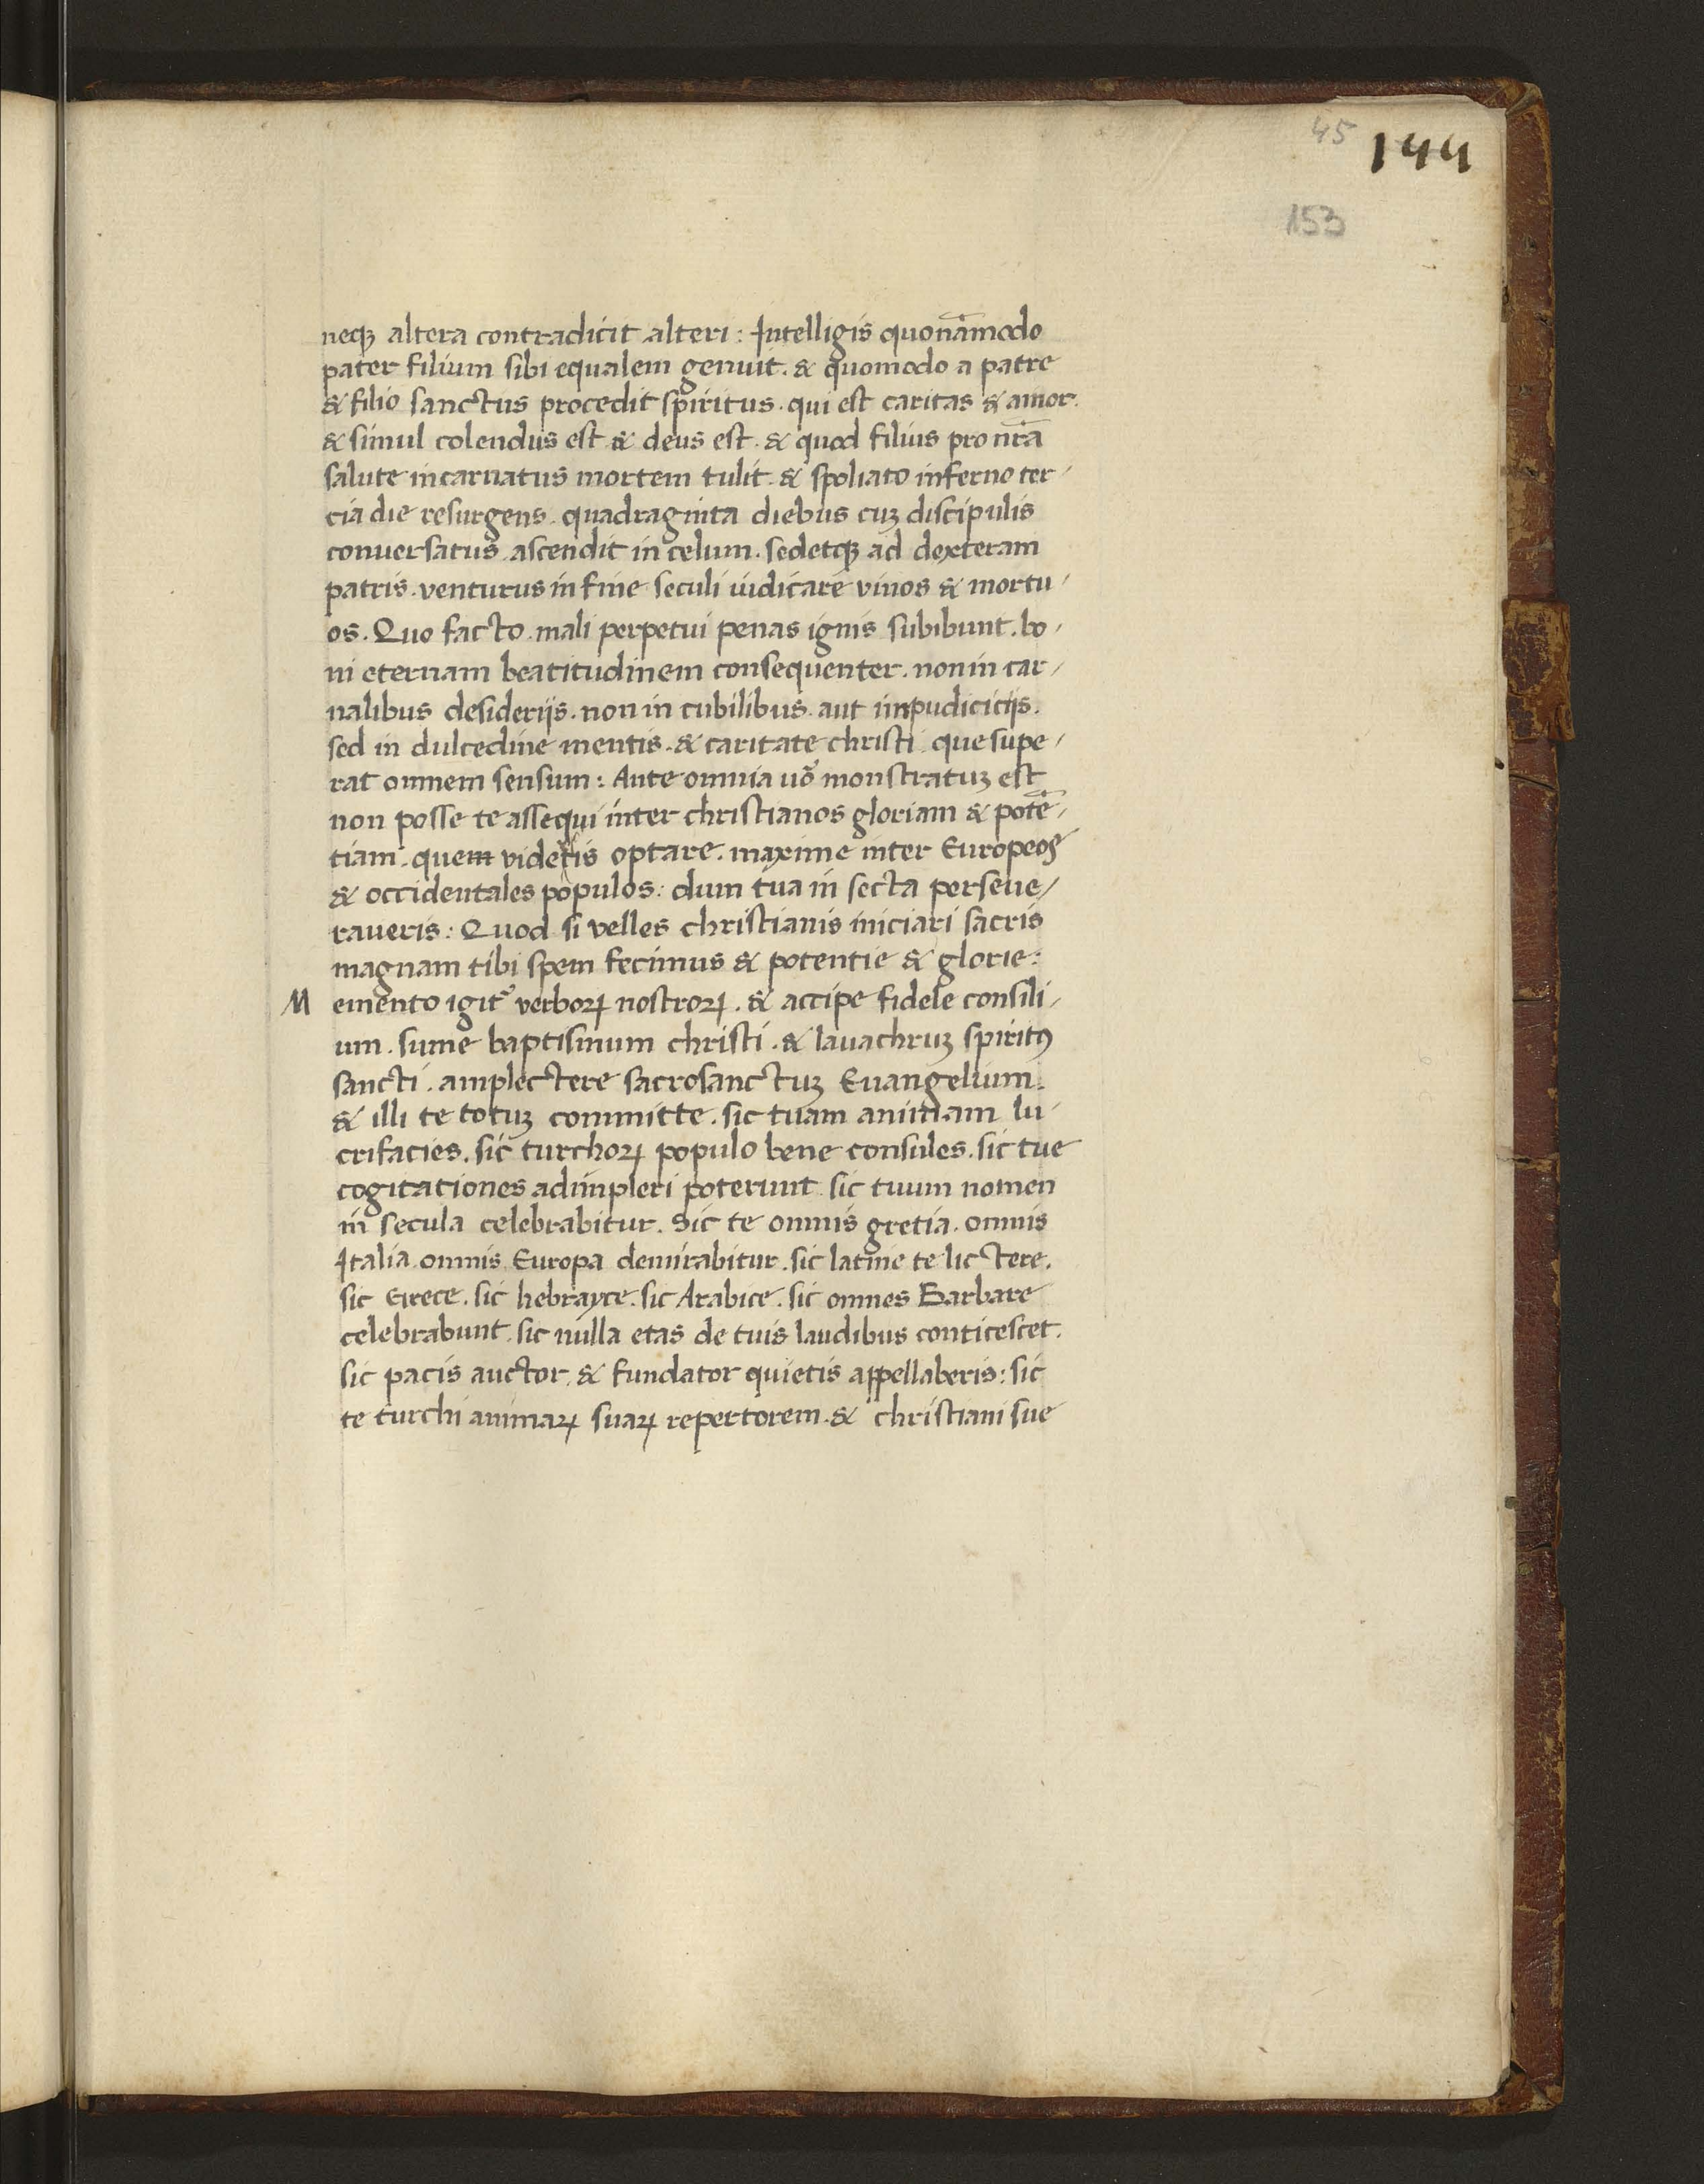 45
144
153
neqꝫ altera contradicit alteri : Intelligis quonãmodo
pater filium sibi equalem genuit . & quomodo a patre
& filio sanctus procedit spiritus . qui est caritas & amor .
& simul colendus est . & deus est . & quod filius pro nrã
salute incarnatus mortem tulit . & spoliato inferno ter/
cia die resurgens . quadraginta diebus cuꝫ discipulis
conuersatus . ascendit in celum . sedetqꝫ ad dexteram
patris . venturus in fine seculi iudicare viuos & mortu/
os . Quo facto . mali perpetui penas ignis subibunt . bo/
ni eternam beatitudinem consequenter . non in car/
nalibus desiderijs . non in cubilibus . aut inpudicicijs .
sed in dulcedine mentis . & caritate christi . que supe/
rat omnem sensum : Ante omnia uõ monstratuꝫ est
non posse te assequi inter christianos gloriam & potẽ/
tiam . quem videris optare . maxime inter Europeos
& occidentales populos : dum tua in secta perseue/
raueris : Quod si velles christianis iniciari sacris
magnam tibi spem fecimus & potentie & glorie :
M emento igit᷑ verboꝝ nostroꝝ . & accipe fidele consili/
um . sume baptismum christi . & lauachruꝫ spiritꝰ
sancti . amplectere sacrosanctuꝫ Euangelium .
& illi te totuꝫ committe . sic tuam animam lu/
crifacies . sic turchoꝝ populo bene consules . sic tue
cogitationes adimpleri poterunt . sic tuum nomen
in secula celebrabitur . Sic te omnis gretia . omnis
Italia . omnis Europa demirabitur . sic latine te lictere .
sic Grece . sic hebrayce . sic Arabice . sic omnes Barbare
celebrabunt . sic nulla etas de tuis laudibus conticescet .
sic pacis auctor . & fundator quietis appellaberis : sic
te turchi animaꝝ suaꝝ repertorem . & christiani sue